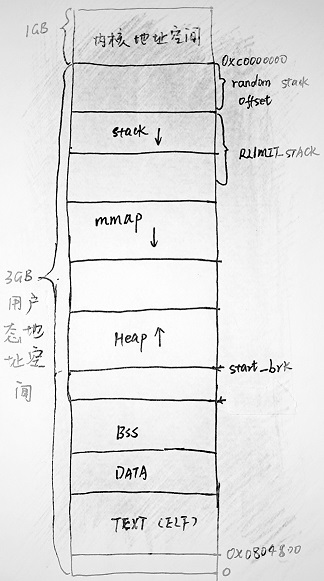 1GB
内核地址空间
0xc0000000
random stack
offset
stack ↓
RLIMIT_STACK
mmap
↓
3GB
用户
态地
址空
间
Heap ↑
start_brk
BSS
DATA
TEXT (ELF)
0x0804800
0